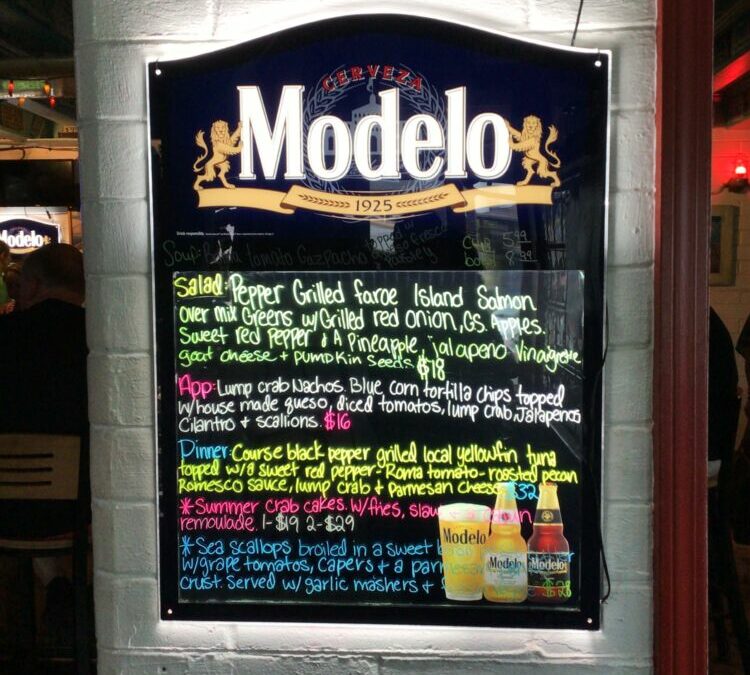 CERVEZA
Modelo
1925
Soup: tomato Gazpacho topped w/
Fresco
Cup 5.99
bowl 8.99
Salad: Pepper Grilled faroe Island Salmon
over mix Greens w/Grilled red onion, GS. Apples.
Sweet red pepper + A Pineapple, jalapeno Vinaigrette
goat cheese + Pumpkin Seeds. $18
App: Lump crab Nachos. Blue corn tortilla chips topped
w/house made queso, diced tomatos, lump crab, Jalapenos
Cilantro + scallions. $16
Dinner: Course black pepper grilled local yellowfin tuna
topped w/a sweet red pepper - Roma tomato - roasted pecan
Romesco sauce, lump crab & Parmesan cheese $32
*Summer crab cakes. w/fries, slaw
remoulade. 1-$19 2-$29
*Sea scallops broiled in a sweet
w/grape tomatoes, capers + a parmesan
crust. Served w/garlic mashers + $28
Modelo
Modelo
Modelo
Modelo